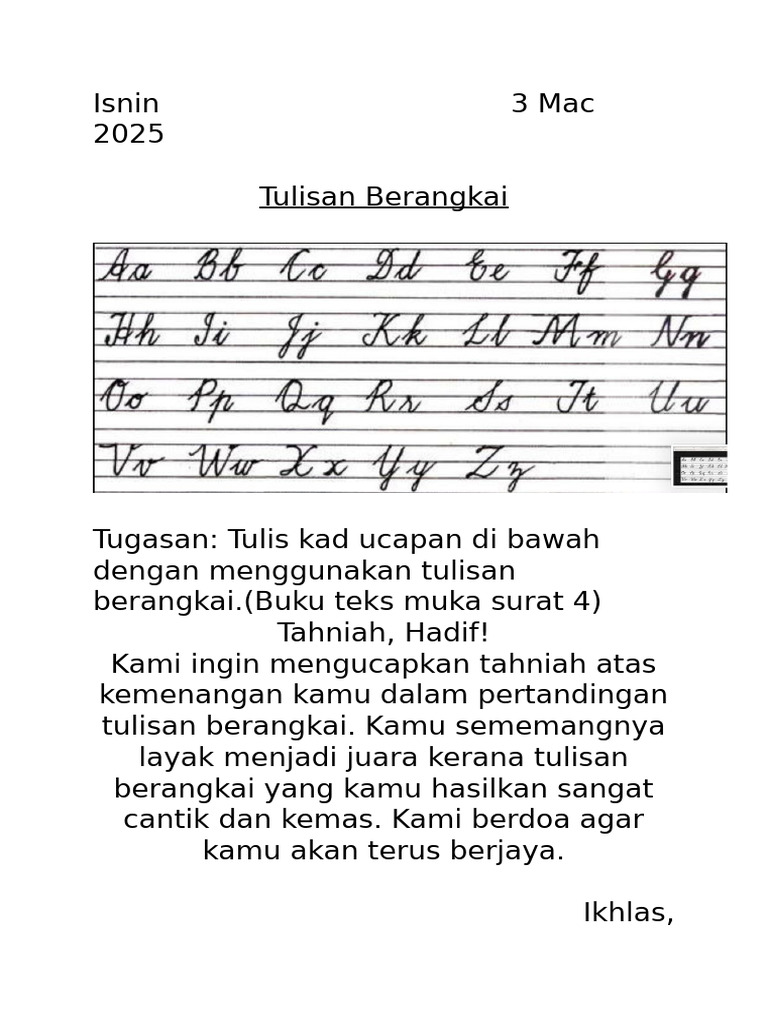 Isnin 3 Mac
2025
Tulisan Berangkai
Aa Bb Cc Dd Ee Ff Gg
Hh Ii Jj Kk Ll Mm Nn
Oo Pp Qq Rr Ss Tt Uu
Vv Ww Xx Yy Zz
Tugasan: Tulis kad ucapan di bawah
dengan menggunakan tulisan
berangkai.(Buku teks muka surat 4)
Tahniah, Hadif!
Kami ingin mengucapkan tahniah atas
kemenangan kamu dalam pertandingan
tulisan berangkai. Kamu sememangnya
layak menjadi juara kerana tulisan
berangkai yang kamu hasilkan sangat
cantik dan kemas. Kami berdoa agar
kamu akan terus berjaya.
Ikhlas,